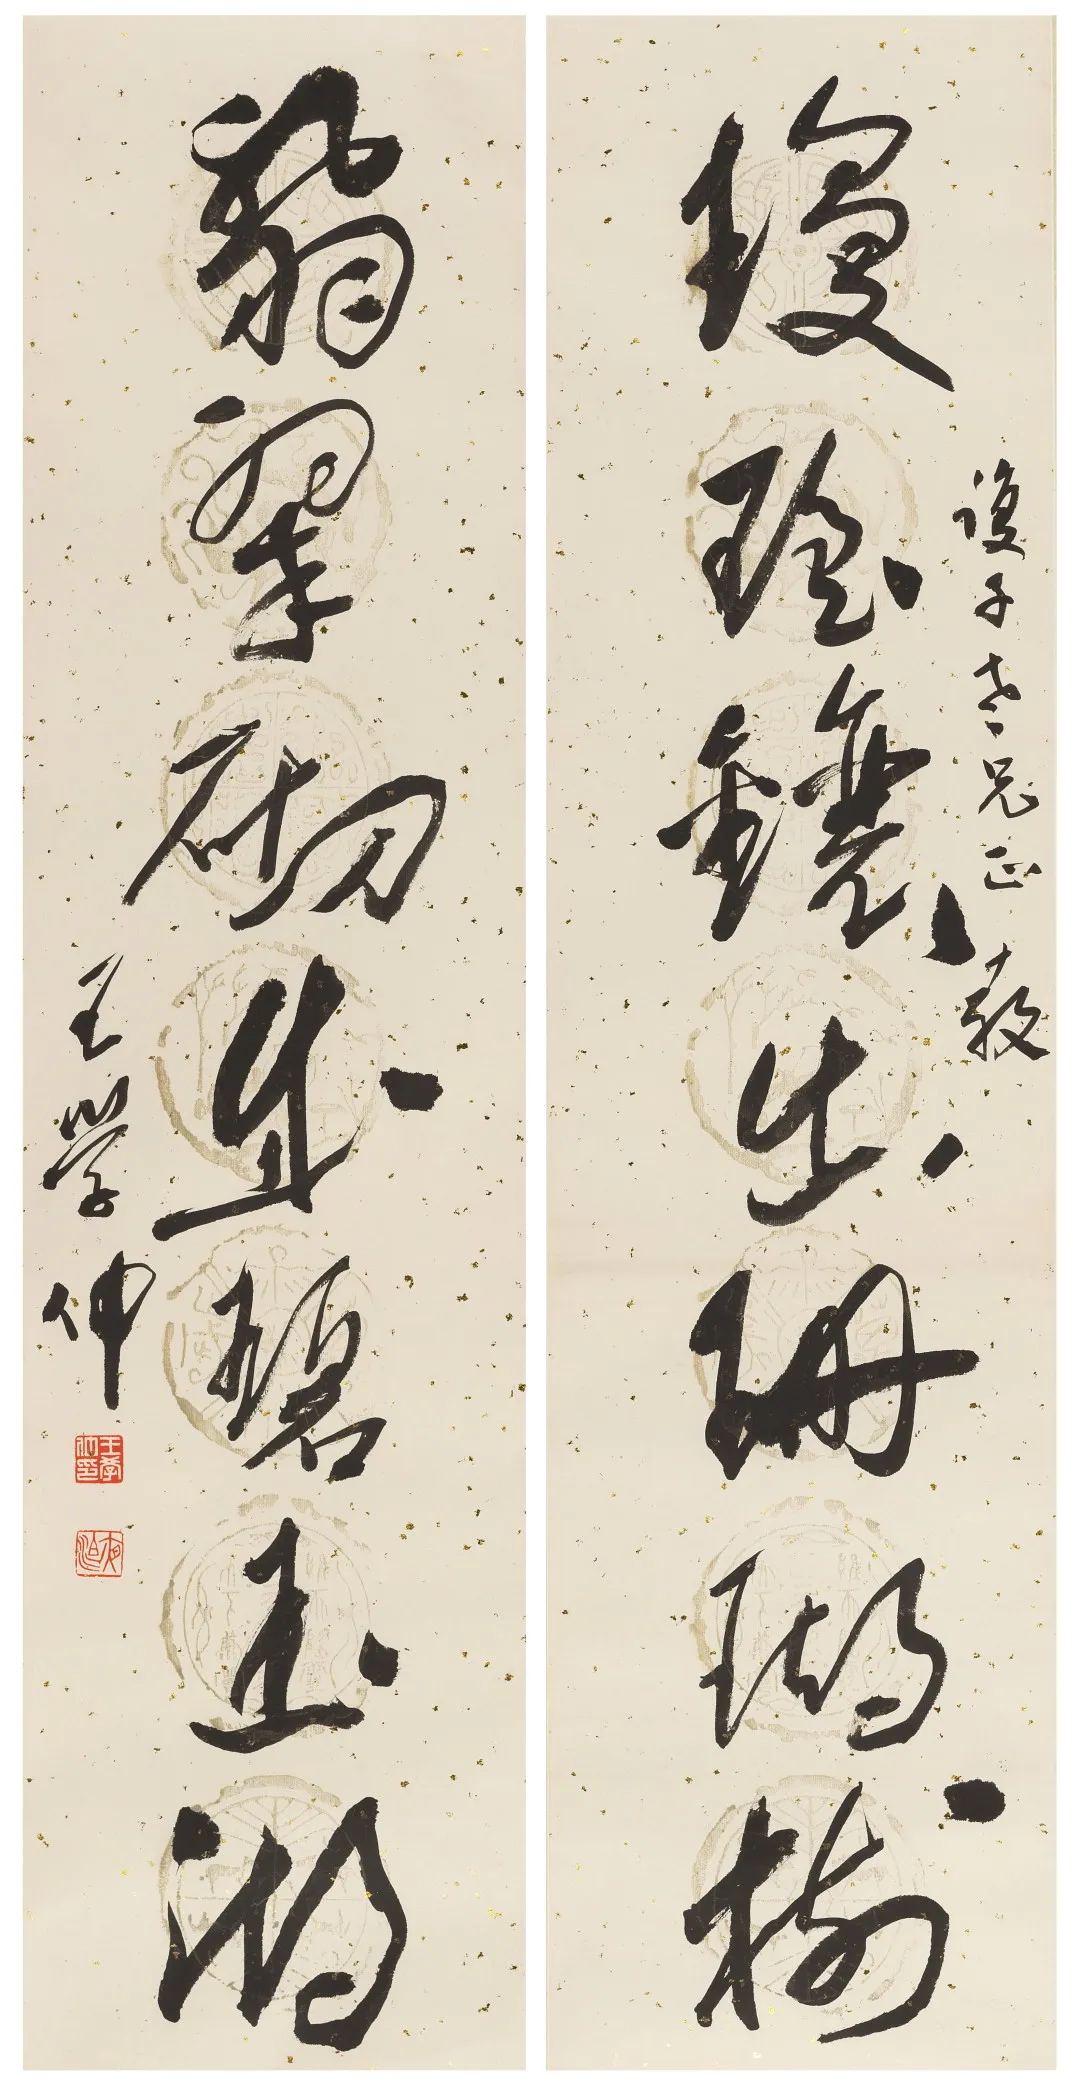 老兄正教
瓊瑤鑲出珊瑚樹
翡翠砌成碧玉湖
王學仲
王學仲印
夜泊